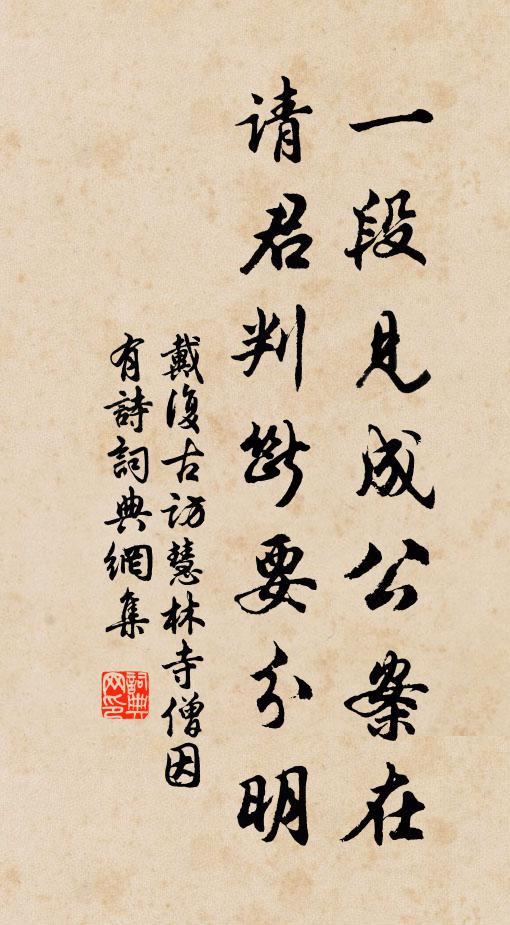 一段見成公案在
請君判斷要分明
戴復古訪慧林寺僧因
有詩詞典網集
詞典網印